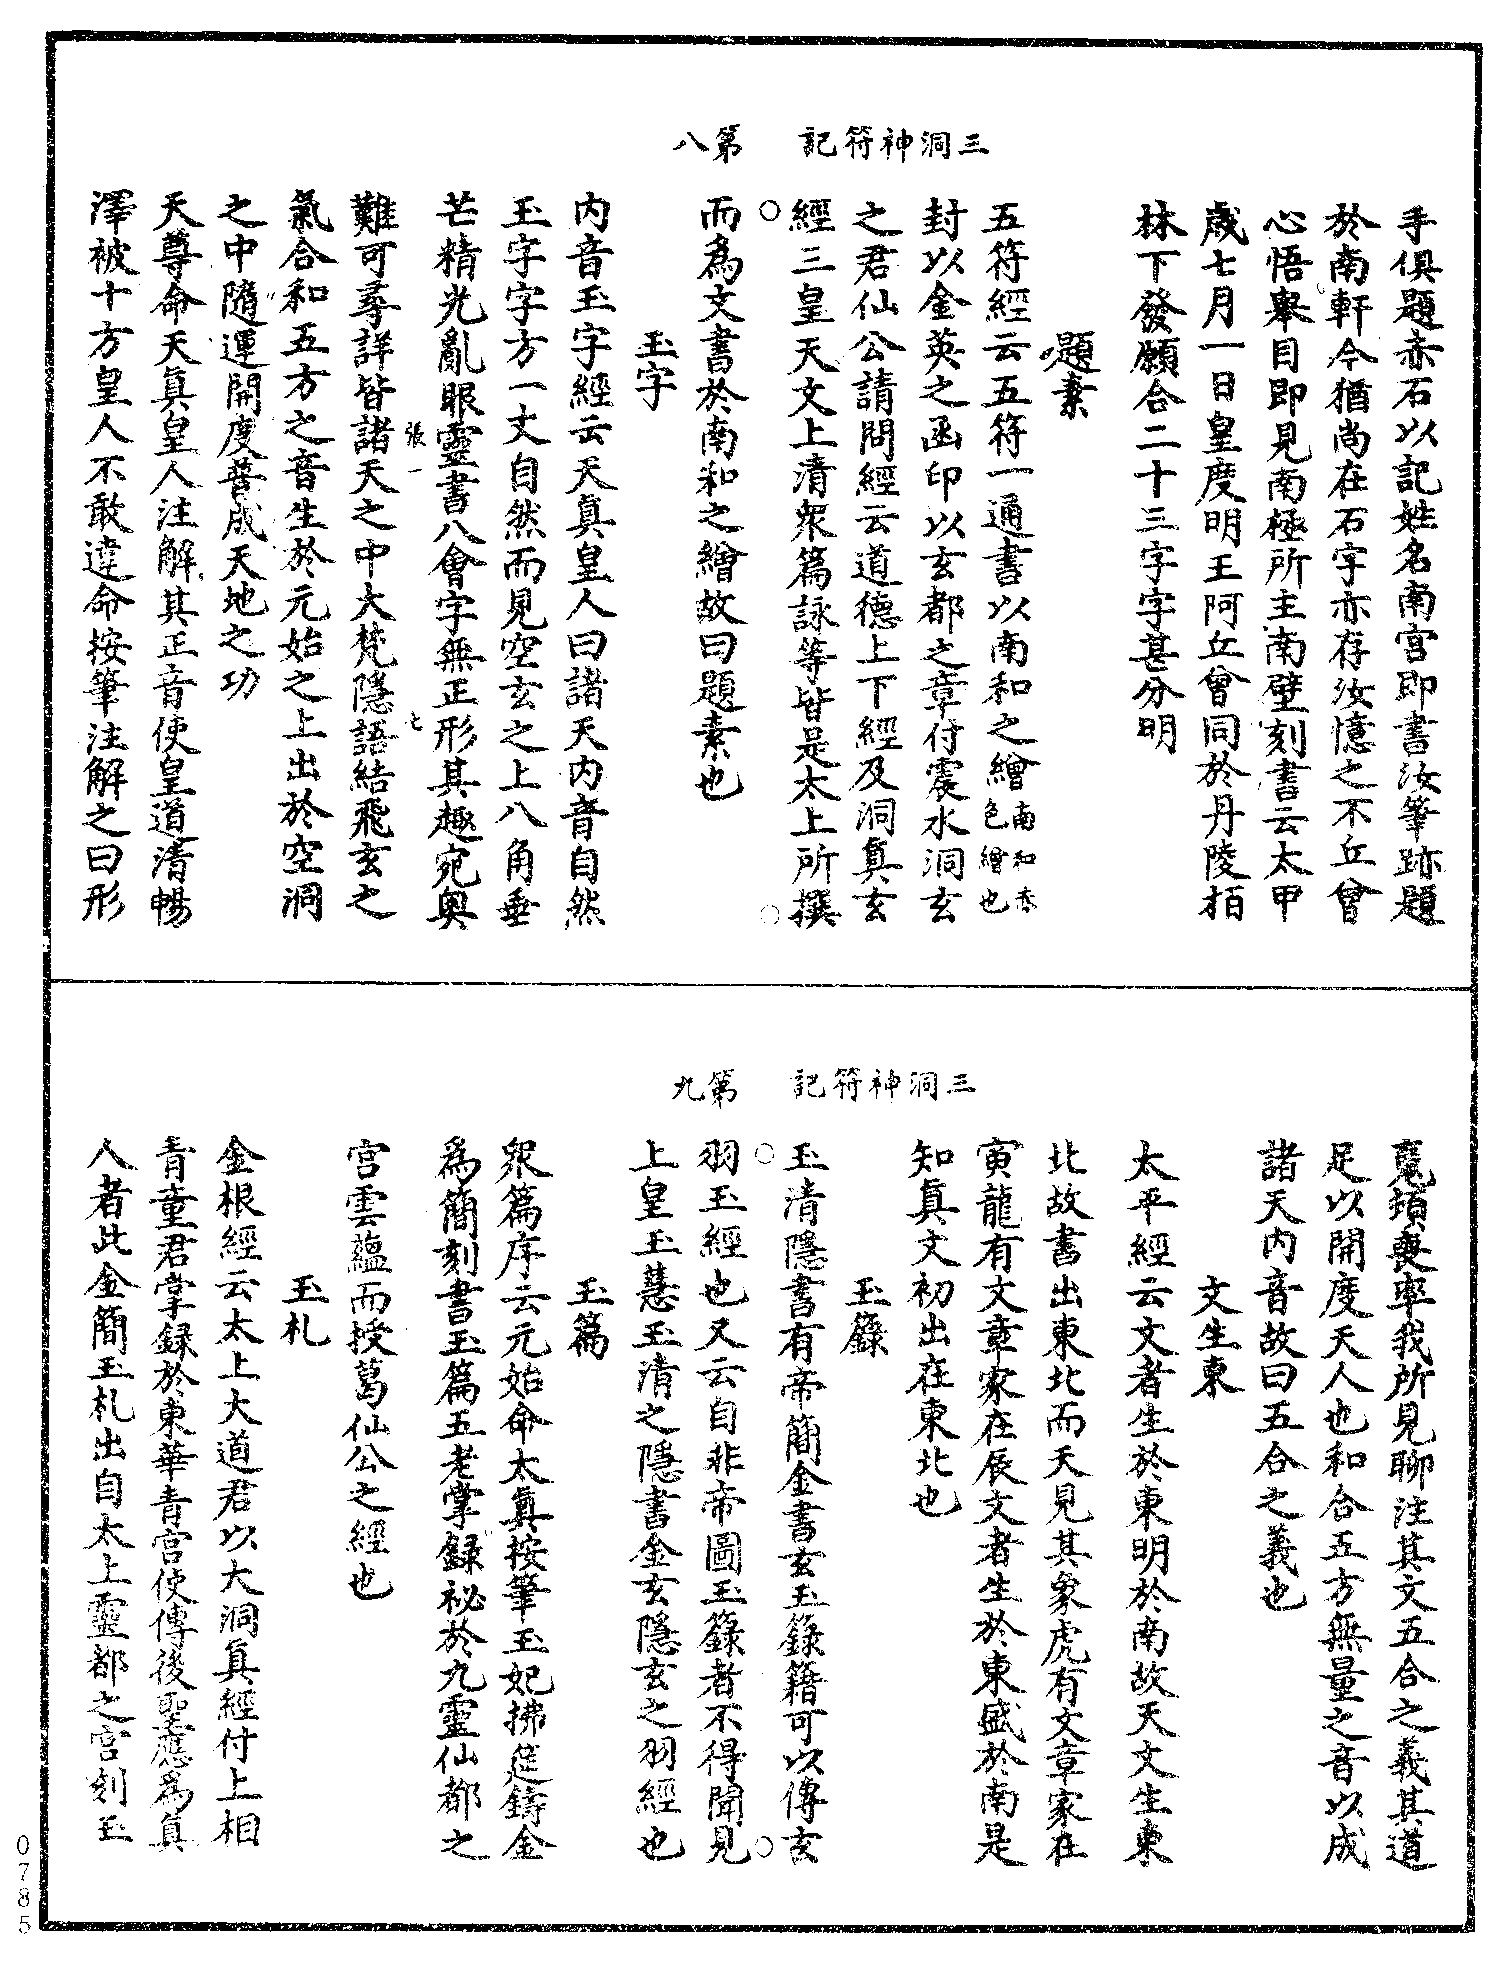 三洞神符記　第八
手俱題赤石以記姓名南宮即書汝筆跡題
於南軒今猶尚在石字亦存汝憶之不丘曾
心悟舉目即見南極所主南壁刻書云太甲
歲七月一日皇度明王阿丘曾同於丹陵栢
林下發願合二十三字字甚分明
題素
五符經云五符一通書以南和之繒南和赤色繒也
封以金英之函印以玄都之章付震水洞玄
之君仙公請問經云道德上下經及洞真玄
經三皇天文上清衆篇詠等皆是太上所撰
而為文書於南和之繒故曰題素也
玉字
内音玉字經云天真皇人曰諸天内音自然
玉字字方一丈自然而見空玄之上八角垂
芒精光亂眼靈書八會字無正形其趣宛奥
張一　七
難可尋詳皆諸天之中大梵隱語結飛玄之
氣合和五方之音生於元始之上出於空洞
之中隨運開度普成天地之功
天尊命天真皇人注解其正音使皇道清暢
澤被十方皇人不敢違命按筆注解之曰形
三洞神符記　第九
魂頓喪率我所見聊注其文五合之義其道
足以開度天人也和合五方無量之音以成
諸天内音故曰五合之義也
文生東
太平經云文者生於東明於南故天文生東
北故書出東北而天見其象虎有文章家在
寅龍有文章家在辰文者生於東盛於南是
知真文初出在東北也
玉籙
玉清隱書有帝簡金書玄玉籙籍可以傳玄
羽玉經也又云自非帝圖玉籙者不得聞見
上皇玉慧玉清之隱書金玄隱玄之羽經也
玉篇
衆篇序云元始命太真按筆玉妃拂筵鑄金
為簡刻書玉篇五老掌錄祕於九靈仙都之
宮雲蘊而授葛仙公之經也
玉札
金根經云太上大道君以大洞真經付上相
青童君掌錄於東華青宮使傳後聖應為真
人者此金簡玉札出自太上靈都之宮刻玉
0785